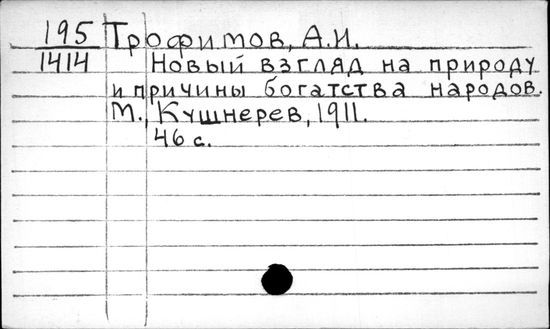 195 Трофимов, А.И.
1414 Новый взгляд на природу
и причины богатства народов.
М., Кушнерев, 1911.
46 с.